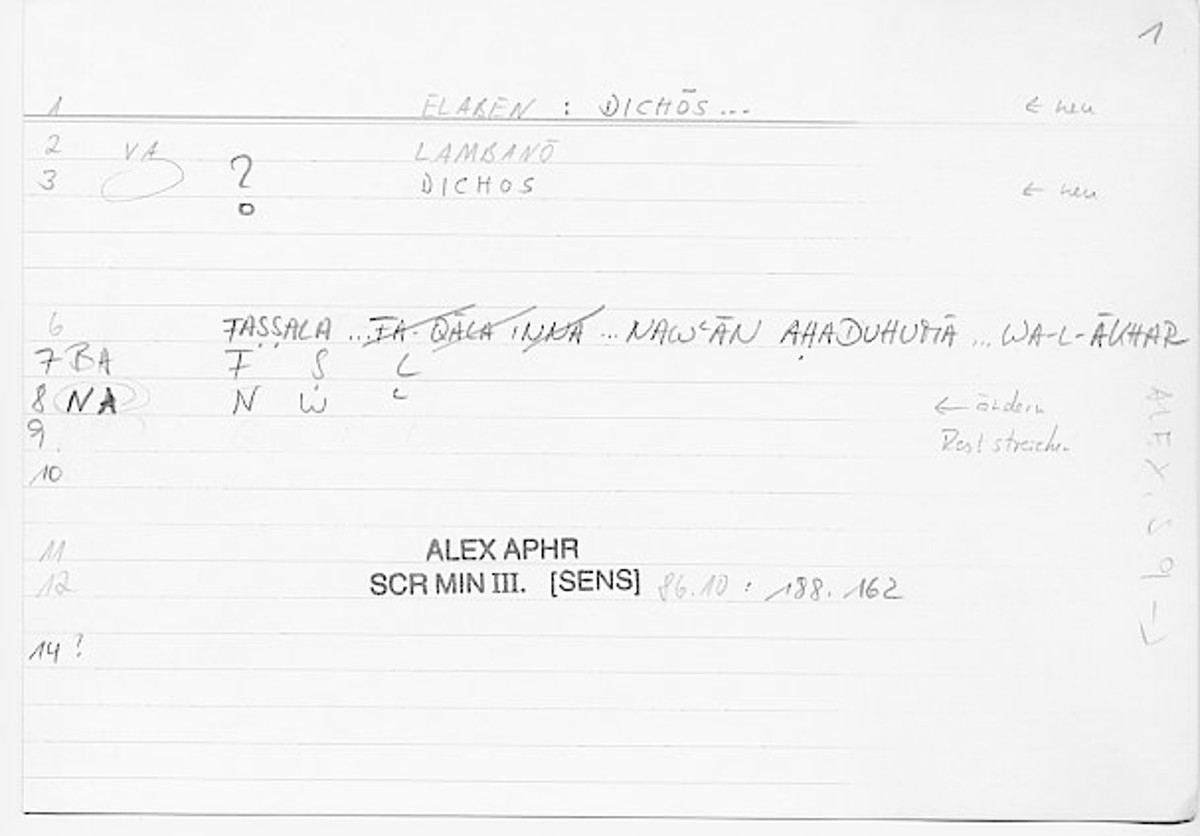 1
1 ELABEN : DICHŌS ... ← neu
2 VA ? LAMBANŌ
3 DICHOS ← neu
6 FAṢṢALA ... FA-QĀLA INNA ... NAWʿĀN AḤADUHUMĀ ... WA-L-ĀKHAR
7 BA F Ṣ L
8 NA N W ʿ ← ändern
9. Rest streichen
10
11 ALEX APHR
12 SCR MIN III. [SENS] 86.10 : 188.162
14 ?